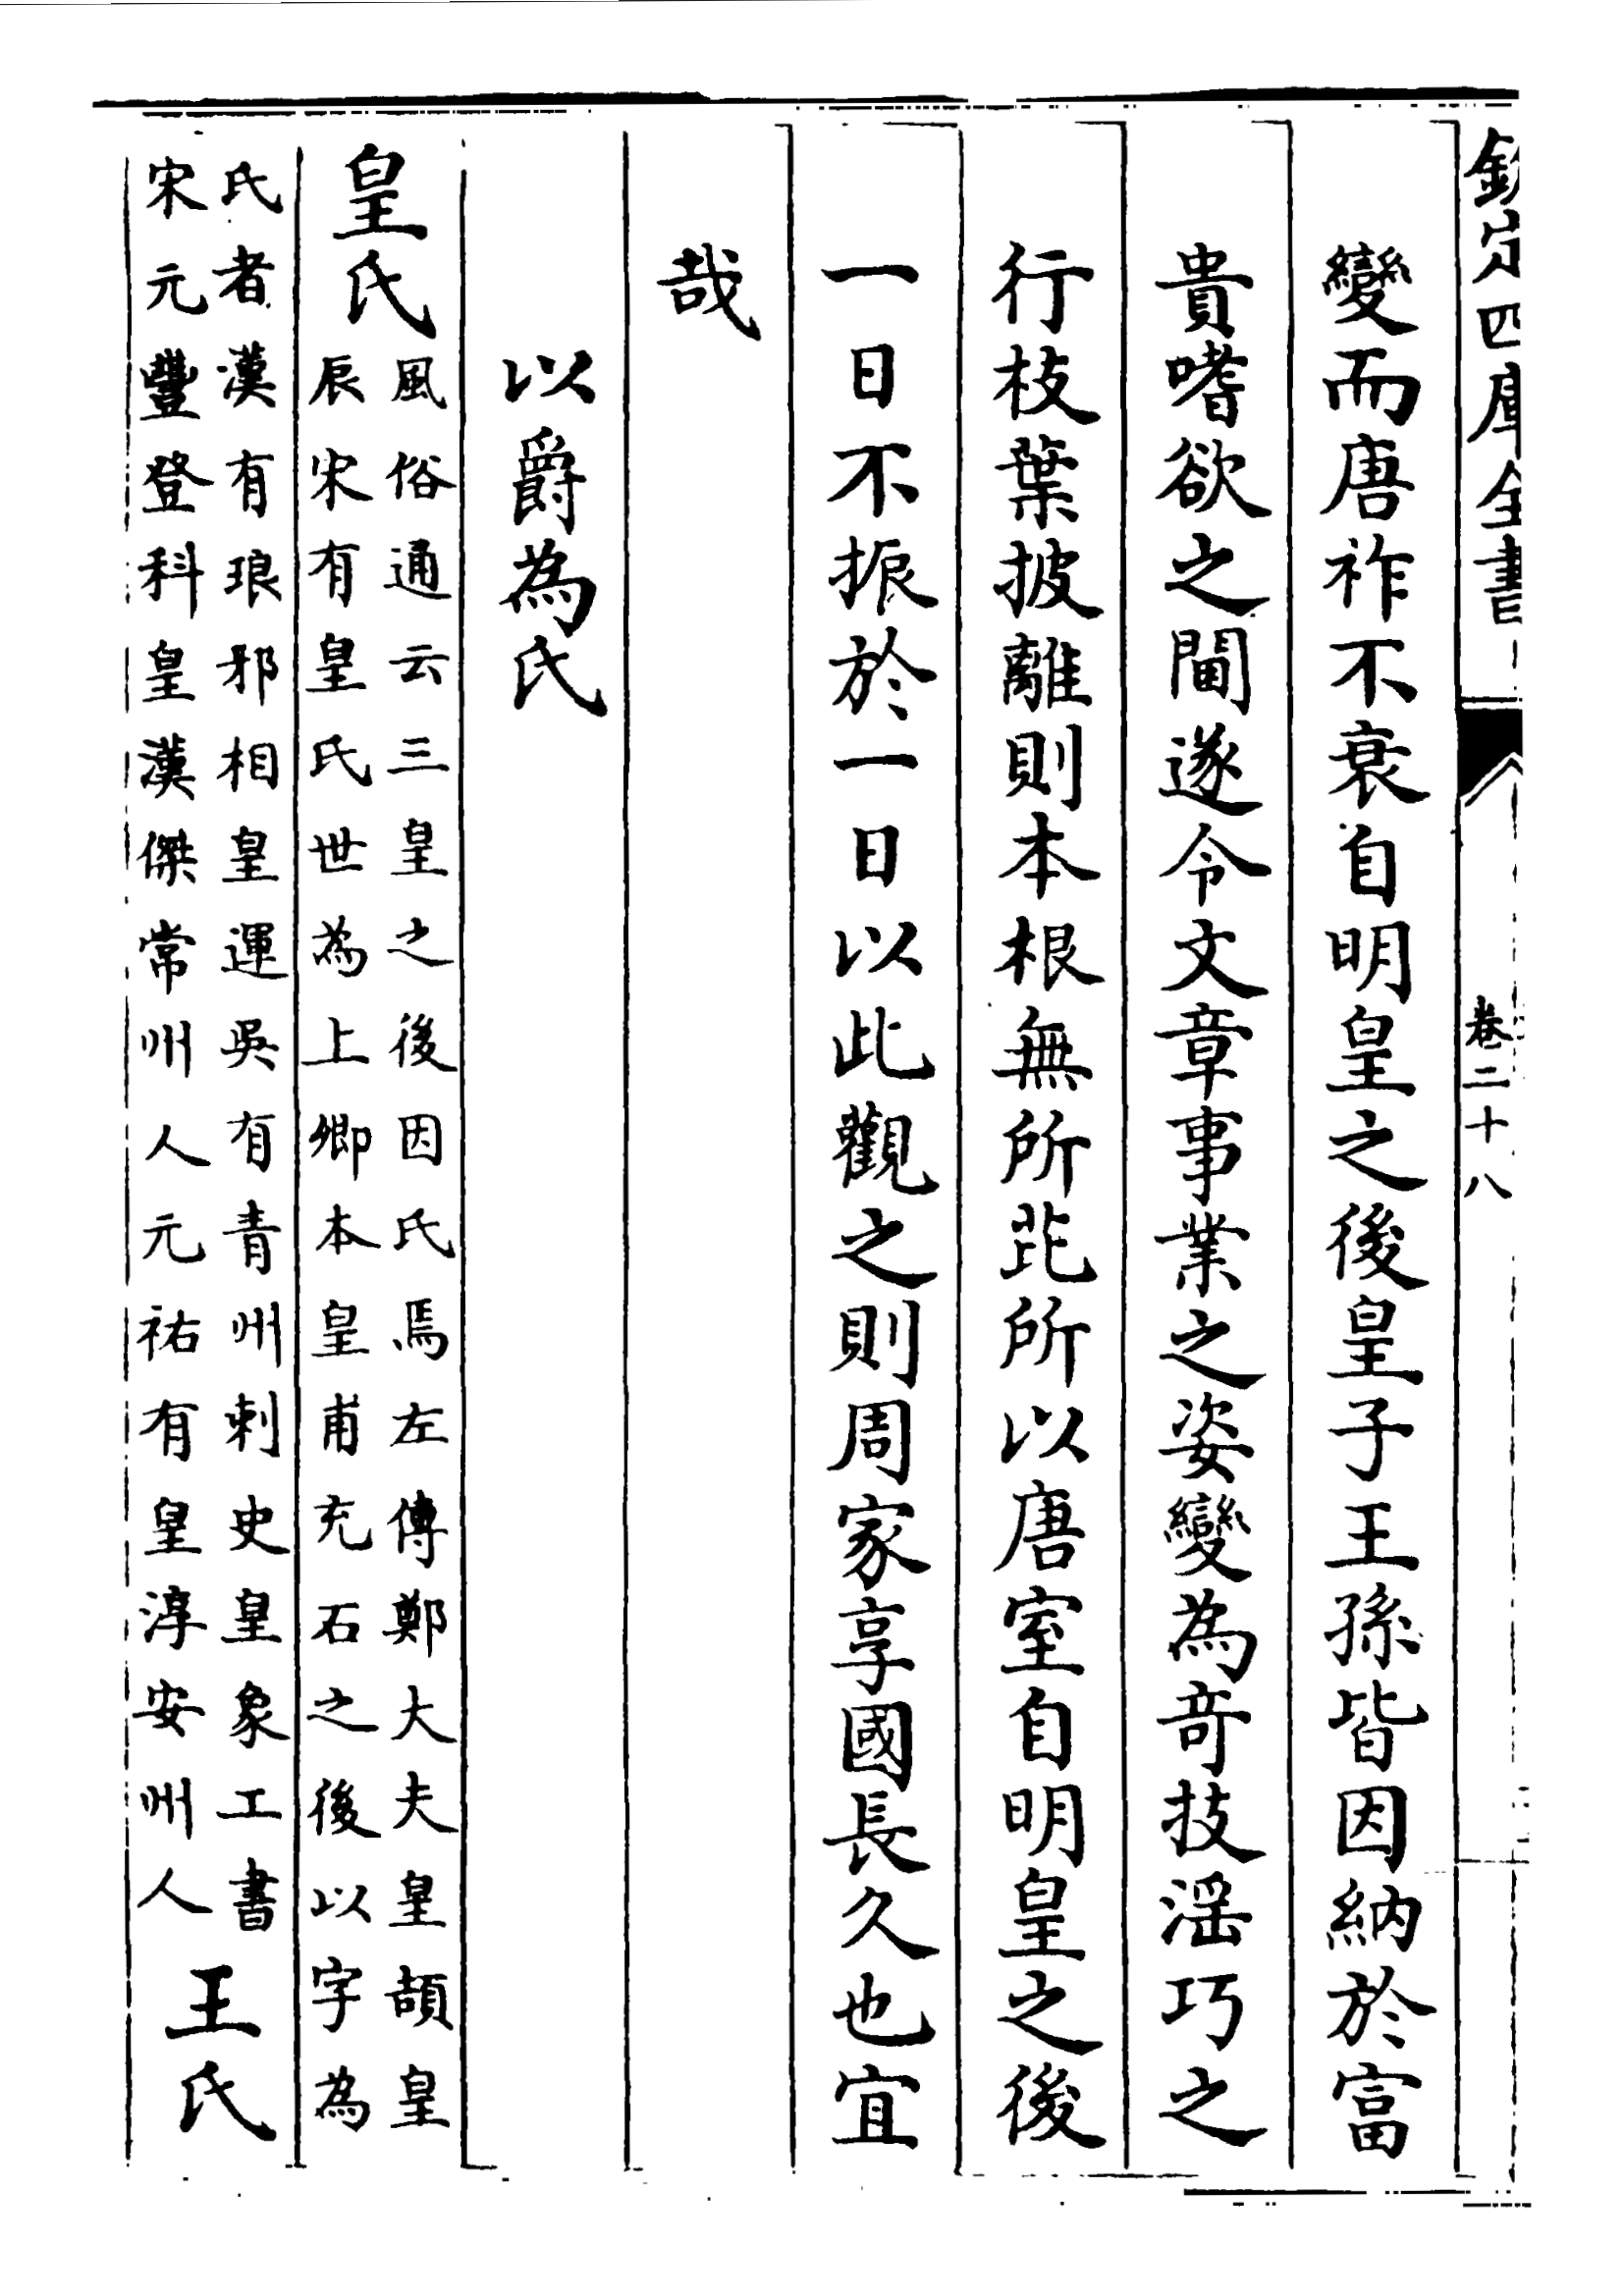 欽定四庫全書
卷二十八
變而唐祚不衰自明皇之後皇子王孫皆因納於富
貴嗜欲之閫遂令文章事業之姿變為竒技滛巧之
行枝葉披離則本根無所芘所以唐室自明皇之後
一日不振於一日以此觀之則周家享國長久也宜
哉
以爵為氏
皇氏
風俗通云三皇之後因氏焉左傳鄭大夫皇頡皇
辰宋有皇氏世為上卿本皇甫充石之後以字為
氏者漢有琅邪相皇運吳有青州刺史皇象工書
宋元豐登科皇漢傑常州人元祐有皇淳安州人
王氏